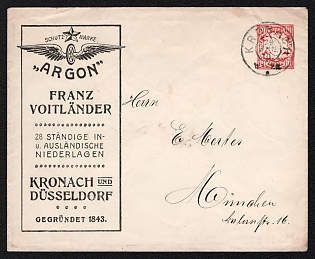 SCHUTZ MARKE
„ARGON"
FRANZ
VOITLÄNDER
28 STÄNDIGE IN-
u. AUSLÄNDISCHE
NIEDERLAGEN
KRONACH UND
DÜSSELDORF
GEGRÜNDET 1843.
KRONACH
Herrn
E. Merter
München
16.